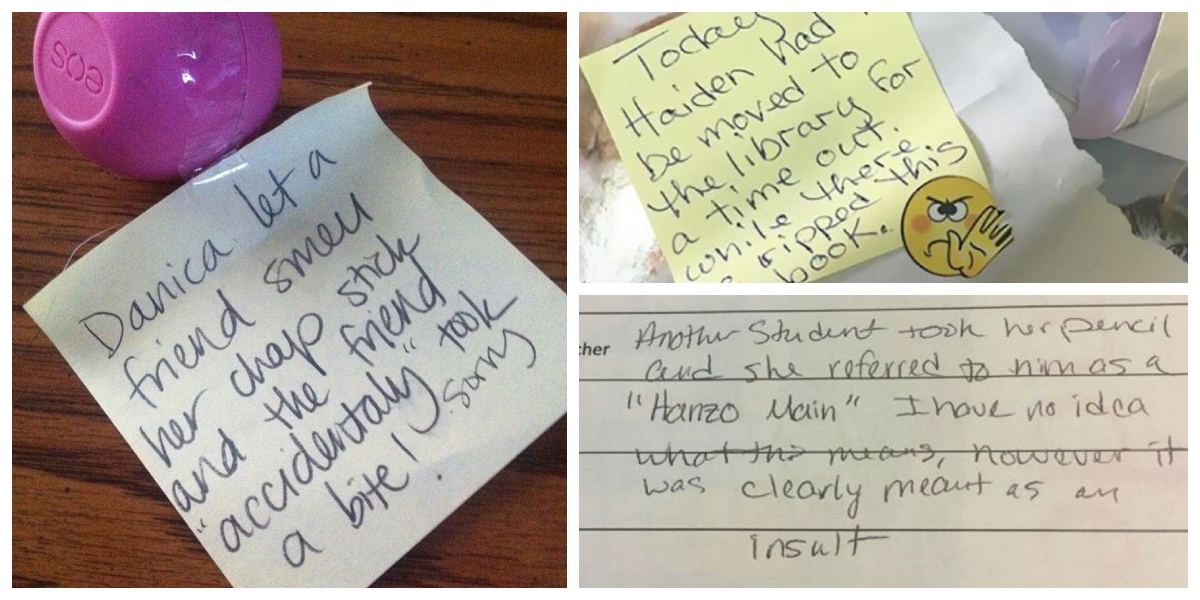 eos
Danica let a
friend smell
her chap stick
and the friend
"accidentally" took
a bite! sorry
Today
Haiden had
be moved to
the library for
a time out.
while there,
ripped this
book.
her
Another Student took her pencil
and she referred to him as a
"Hanzo Main" I have no idea
what this means, however it
was clearly meant as an
insult